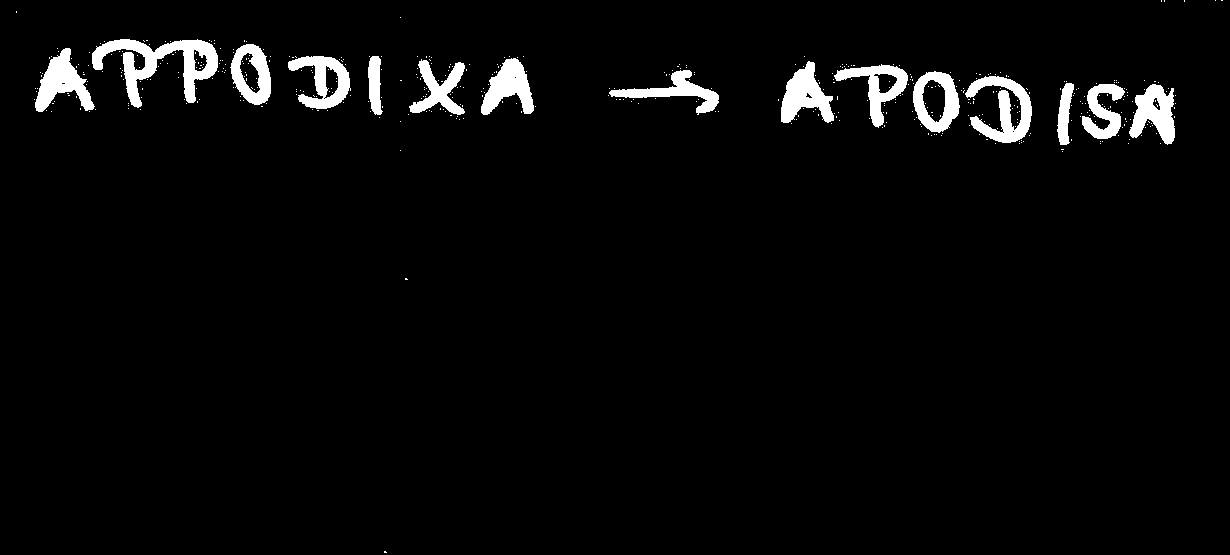 APPODIXA → APODISA